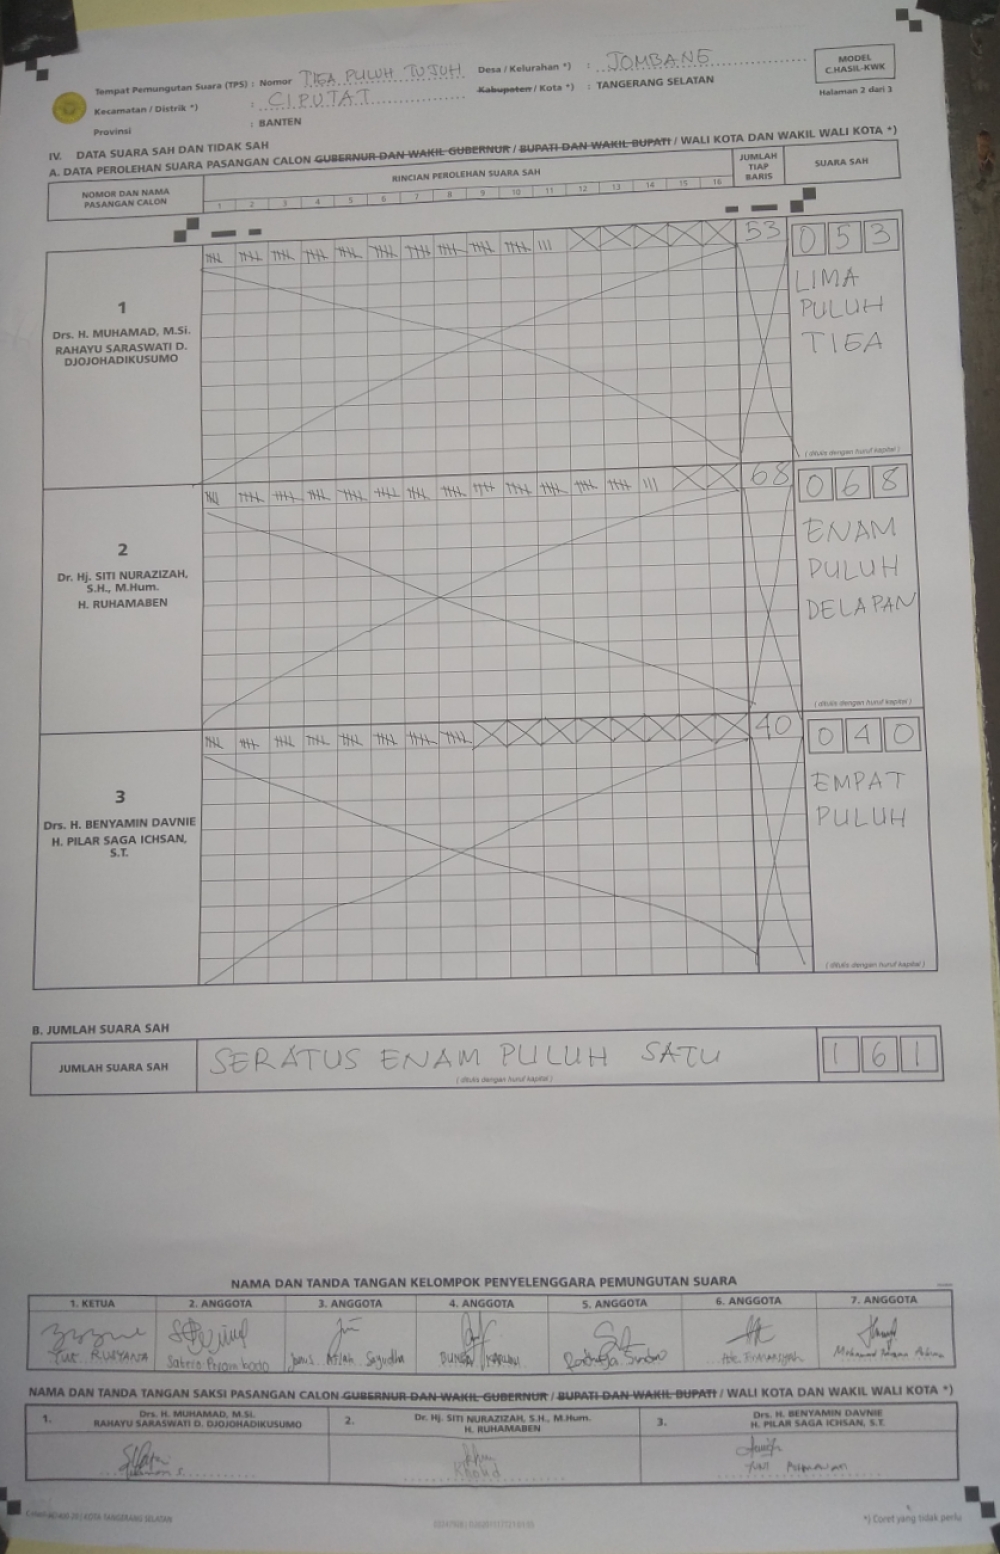 MODEL
C.HASIL-KWK
Halaman 2 dari 3
Tempat Pemungutan Suara (TPS) : Nomor TIGA PULUH TUJUH Desa / Kelurahan *) : JOMBANG
Kecamatan / Distrik *) : CIPUTAT Kabupaten / Kota *) : TANGERANG SELATAN
Provinsi : BANTEN
IV. DATA SUARA SAH DAN TIDAK SAH
A. DATA PEROLEHAN SUARA PASANGAN CALON GUBERNUR DAN WAKIL GUBERNUR / BUPATI DAN WAKIL BUPATI / WALI KOTA DAN WAKIL WALI KOTA *)
NOMOR DAN NAMA
PASANGAN CALON
RINCIAN PEROLEHAN SUARA SAH
1 2 3 4 5 6 7 8 9 10 11 12 13 14 15 16
JUMLAH
TIAP
BARIS
SUARA SAH
1
Drs. H. MUHAMAD, M.Si.
RAHAYU SARASWATI D.
DJOJOHADIKUSUMO
53
053
LIMA
PULUH
TIGA
( ditulis dengan huruf kapital )
2
Dr. Hj. SITI NURAZIZAH,
S.H., M.Hum.
H. RUHAMABEN
68
068
ENAM
PULUH
DELAPAN
( ditulis dengan huruf kapital )
3
Drs. H. BENYAMIN DAVNIE
H. PILAR SAGA ICHSAN,
S.T.
40
040
EMPAT
PULUH
( ditulis dengan huruf kapital )
B. JUMLAH SUARA SAH
JUMLAH SUARA SAH SERATUS ENAM PULUH SATU 161
( ditulis dengan huruf kapital )
NAMA DAN TANDA TANGAN KELOMPOK PENYELENGGARA PEMUNGUTAN SUARA
1. KETUA 2. ANGGOTA 3. ANGGOTA 4. ANGGOTA 5. ANGGOTA 6. ANGGOTA 7. ANGGOTA
NAMA DAN TANDA TANGAN SAKSI PASANGAN CALON GUBERNUR DAN WAKIL GUBERNUR / BUPATI DAN WAKIL BUPATI / WALI KOTA DAN WAKIL WALI KOTA *)
1. Drs. H. MUHAMAD, M.Si.
RAHAYU SARASWATI D. DJOJOHADIKUSUMO
2. Dr. Hj. SITI NURAZIZAH, S.H., M.Hum.
H. RUHAMABEN
3. Drs. H. BENYAMIN DAVNIE
H. PILAR SAGA ICHSAN, S.T.
Kholid
KOTA TANGERANG SELATAN
*) Coret yang tidak perlu